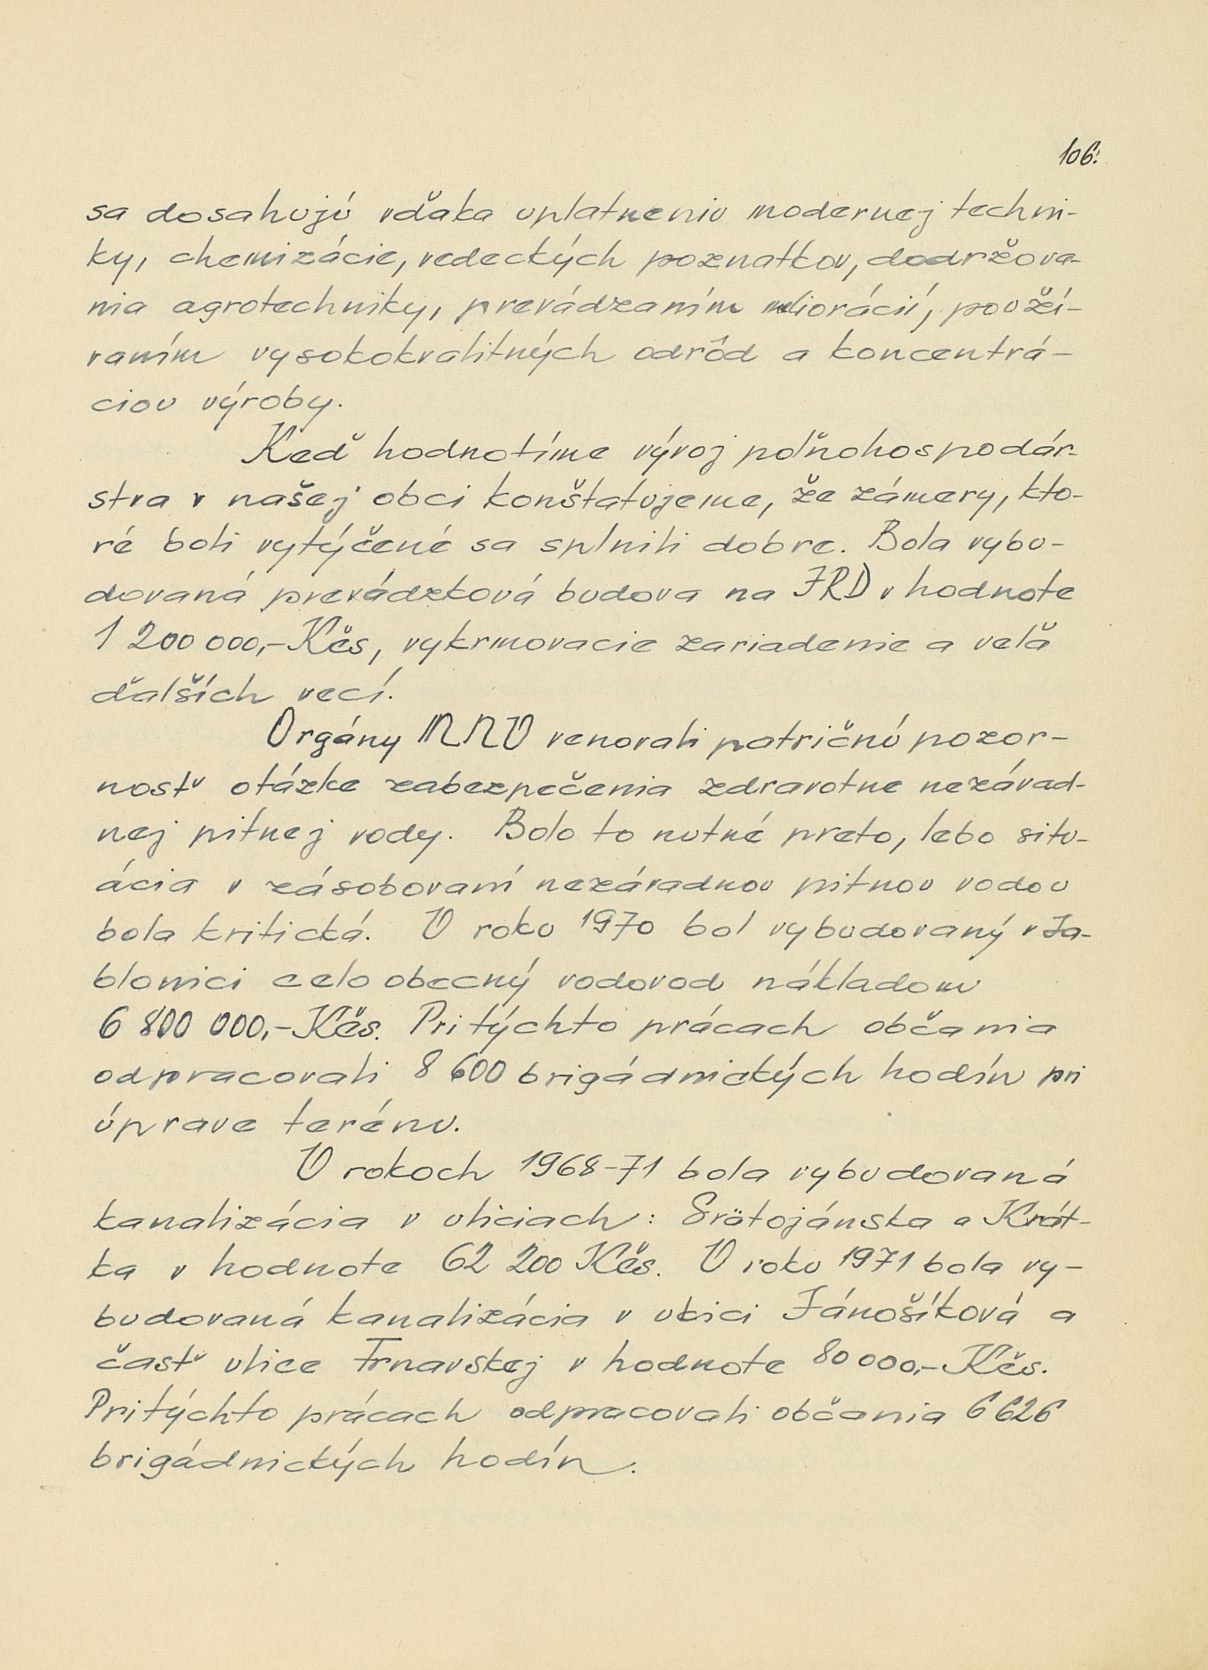 106.
sa dosahujú vďaka uplatneniu modernej techni-
ky, chemizácie, vedeckých poznatkov, dodržova-
nia agrotechniky, prevádzaním meliorácií, použí-
vaním vysokokvalitných odrôd a koncentrá-
ciou výroby.
Keď hodnotíme vývoj poľnohospodár-
stva v našej obci konštatujeme, že zámery, kto-
ré boli vytýčené sa splnili dobre. Bola vybu-
dovaná prevádzková budova na JRD v hodnote
1 200 000,- Kčs, vykrmovacie zariadenie a veľa
ďalších vecí.
Orgány MNV venovali patričnú pozor-
nosť otázke zabezpečenia zdravotne nezávad-
nej pitnej vody. Bolo to nutné preto, lebo situ-
ácia v zásobovaní nezávadnou pitnou vodou
bola kritická. V roku 1970 bol vybudovaný v Ja-
blonici celoobecný vodovod nákladom
6 800 000,- Kčs. Pri týchto prácach občania
odpracovali 8 600 brigádnických hodín pri
úprave terénu.
V rokoch 1968-71 bola vybudovaná
kanalizácia v uliciach: Svätojánska a Krát-
ka v hodnote 62 200 Kčs. V roku 1971 bola vy-
budovaná kanalizácia v ulici Jánošíková a
časť ulice Trnavskej v hodnote 80 000,- Kčs.
Pri týchto prácach odpracovali občania 6 626
brigádnických hodín.